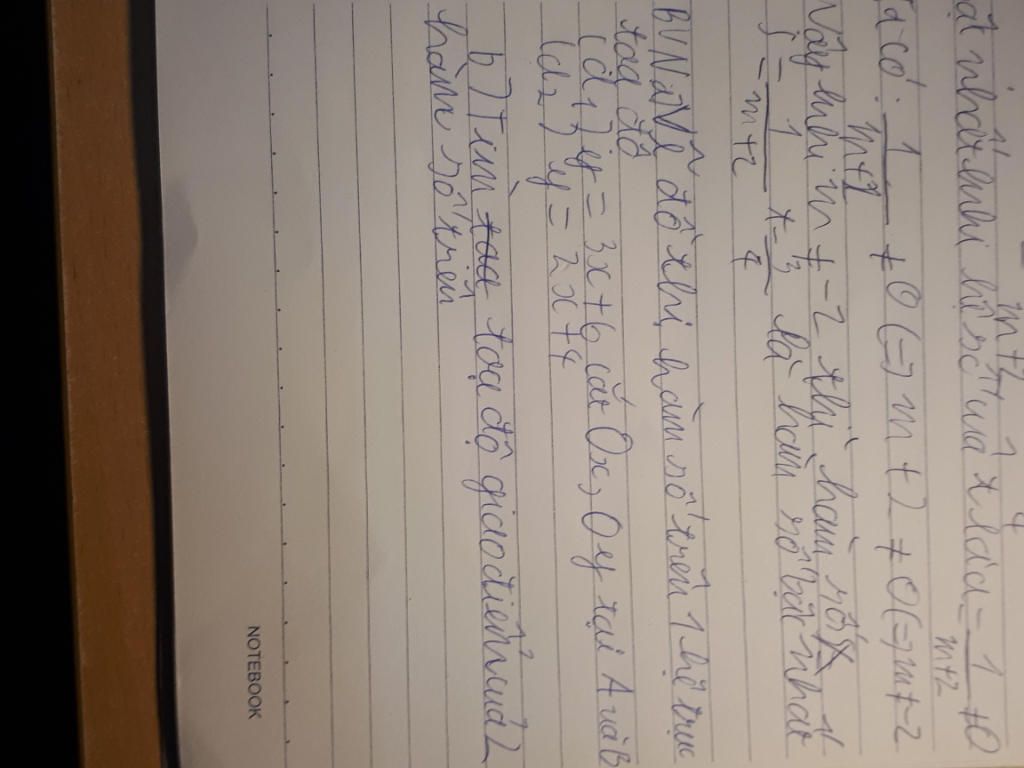 m+2 4
nhất khi hệ số của x là a = 1/m+2 ≠ 0
Ta có: 1/m+2 ≠ 0 (=) m+2 ≠ 0 (=) m ≠ -2
Vậy khi m ≠ -2 thì hàm số
y = 1/m+2 x - 3/4 là hàm số bậc nhất
BVN a) Vẽ đồ thị hàm số trên 1 hệ trục
tọa độ
(d1) y = 3x+6 cắt Ox, Oy tại A và B
(d2) y = 2x+4
b) Tìm tọa độ giao điểm của 2
hàm số trên
NOTEBOOK